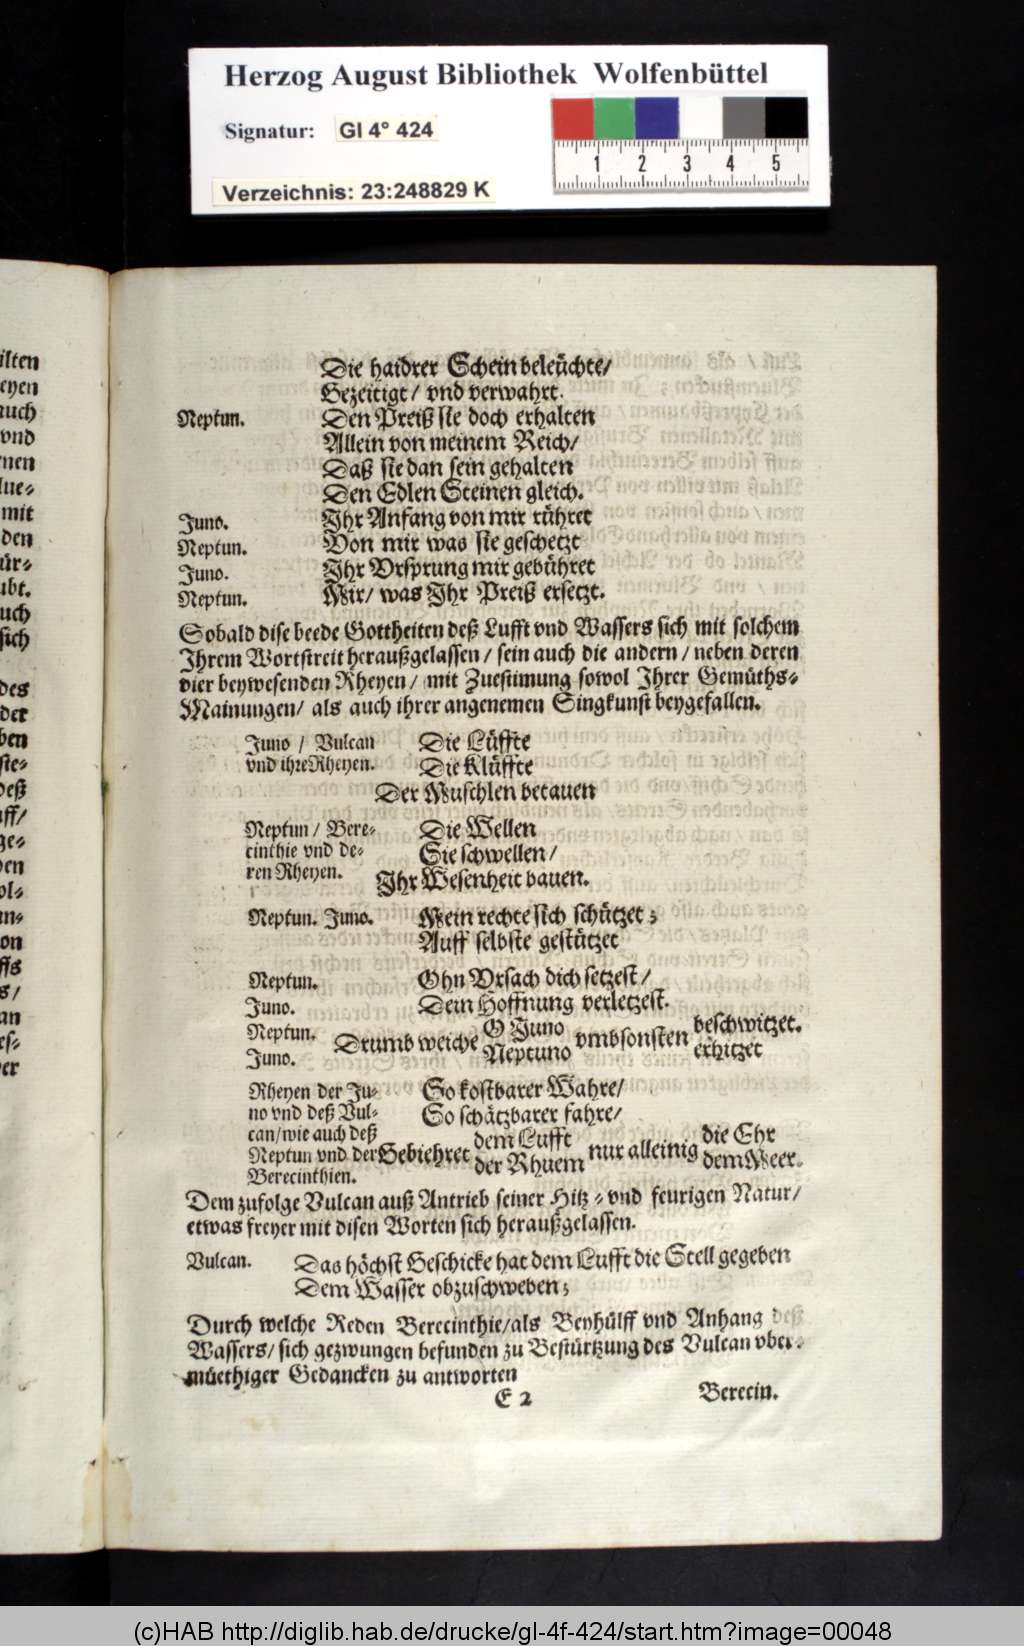 Herzog August Bibliothek Wolfenbüttel
Signatur: Gl 4° 424
Verzeichnis: 23:248829 K
1 2 3 4 5
Die haidrer Schein beleüchte/
Gezeitigt/ vnd verwahrt.
Neptun. Den Preiß sie doch erhalten
Allein von meinem Reich/
Daß sie dan sein gehalten
Den Edlen Steinen gleich.
Juno. Jhr Anfang von mir rühret
Neptun. Von mir was sie geschetzt
Juno. Jhr Vrsprung mir gebühret
Neptun. Mir/ was Jhr Preiß ersetzt.
Sobald dise beede Gottheiten deß Lufft vnd Wassers sich mit solchem
Jhrem Wortstreit heraußgelassen/ sein auch die andern/ neben deren
vier beywesenden Rheyen/ mit Zuestimung sowol Jhrer Gemüths-
Mainungen/ als auch ihrer angenemen Singkunst beygefallen.
Juno / Vulcan Die Lüffte
vnd ihre Rheyen. Die Klüffte
Der Muschlen betauen
Neptun/ Bere- Die Wellen
cinthie vnd de- Sie schwellen/
ren Rheyen. Jhr Wesenheit bauen.
Neptun. Juno. Mein rechte sich schützet;
Auff selbste gestützet
Neptun. Ohn Vrsach dich setzest/
Juno. Dein Hoffnung verletzest.
Neptun. Drumb weiche O Juno vmbsonsten beschwitzet.
Juno. Neptuno erhitzet
Rheyen der Ju- So kostbarer Wahre/
no vnd deß Vul- So schätzbarer fahre/
can/wie auch deß dem Lufft die Ehr
Neptun vnd der Gebiehret der Rhuem nur alleinig dem Meer.
Berecinthien.
Dem zufolge Vulcan auß Antrieb seiner Hitz- vnd feurigen Natur/
etwas freyer mit disen Worten sich heraußgelassen.
Vulcan. Das höchst Geschicke hat dem Lufft die Stell gegeben
Dem Wasser obzuschweben;
Durch welche Reden Berecinthie/als Beyhülff vnd Anhang deß
Wassers/ sich gezwungen befunden zu Bestürtzung des Vulcan vber-
müethiger Gedancken zu antworten
E 2 Berecin.
(c)HAB http://diglib.hab.de/drucke/gl-4f-424/start.htm?image=00048